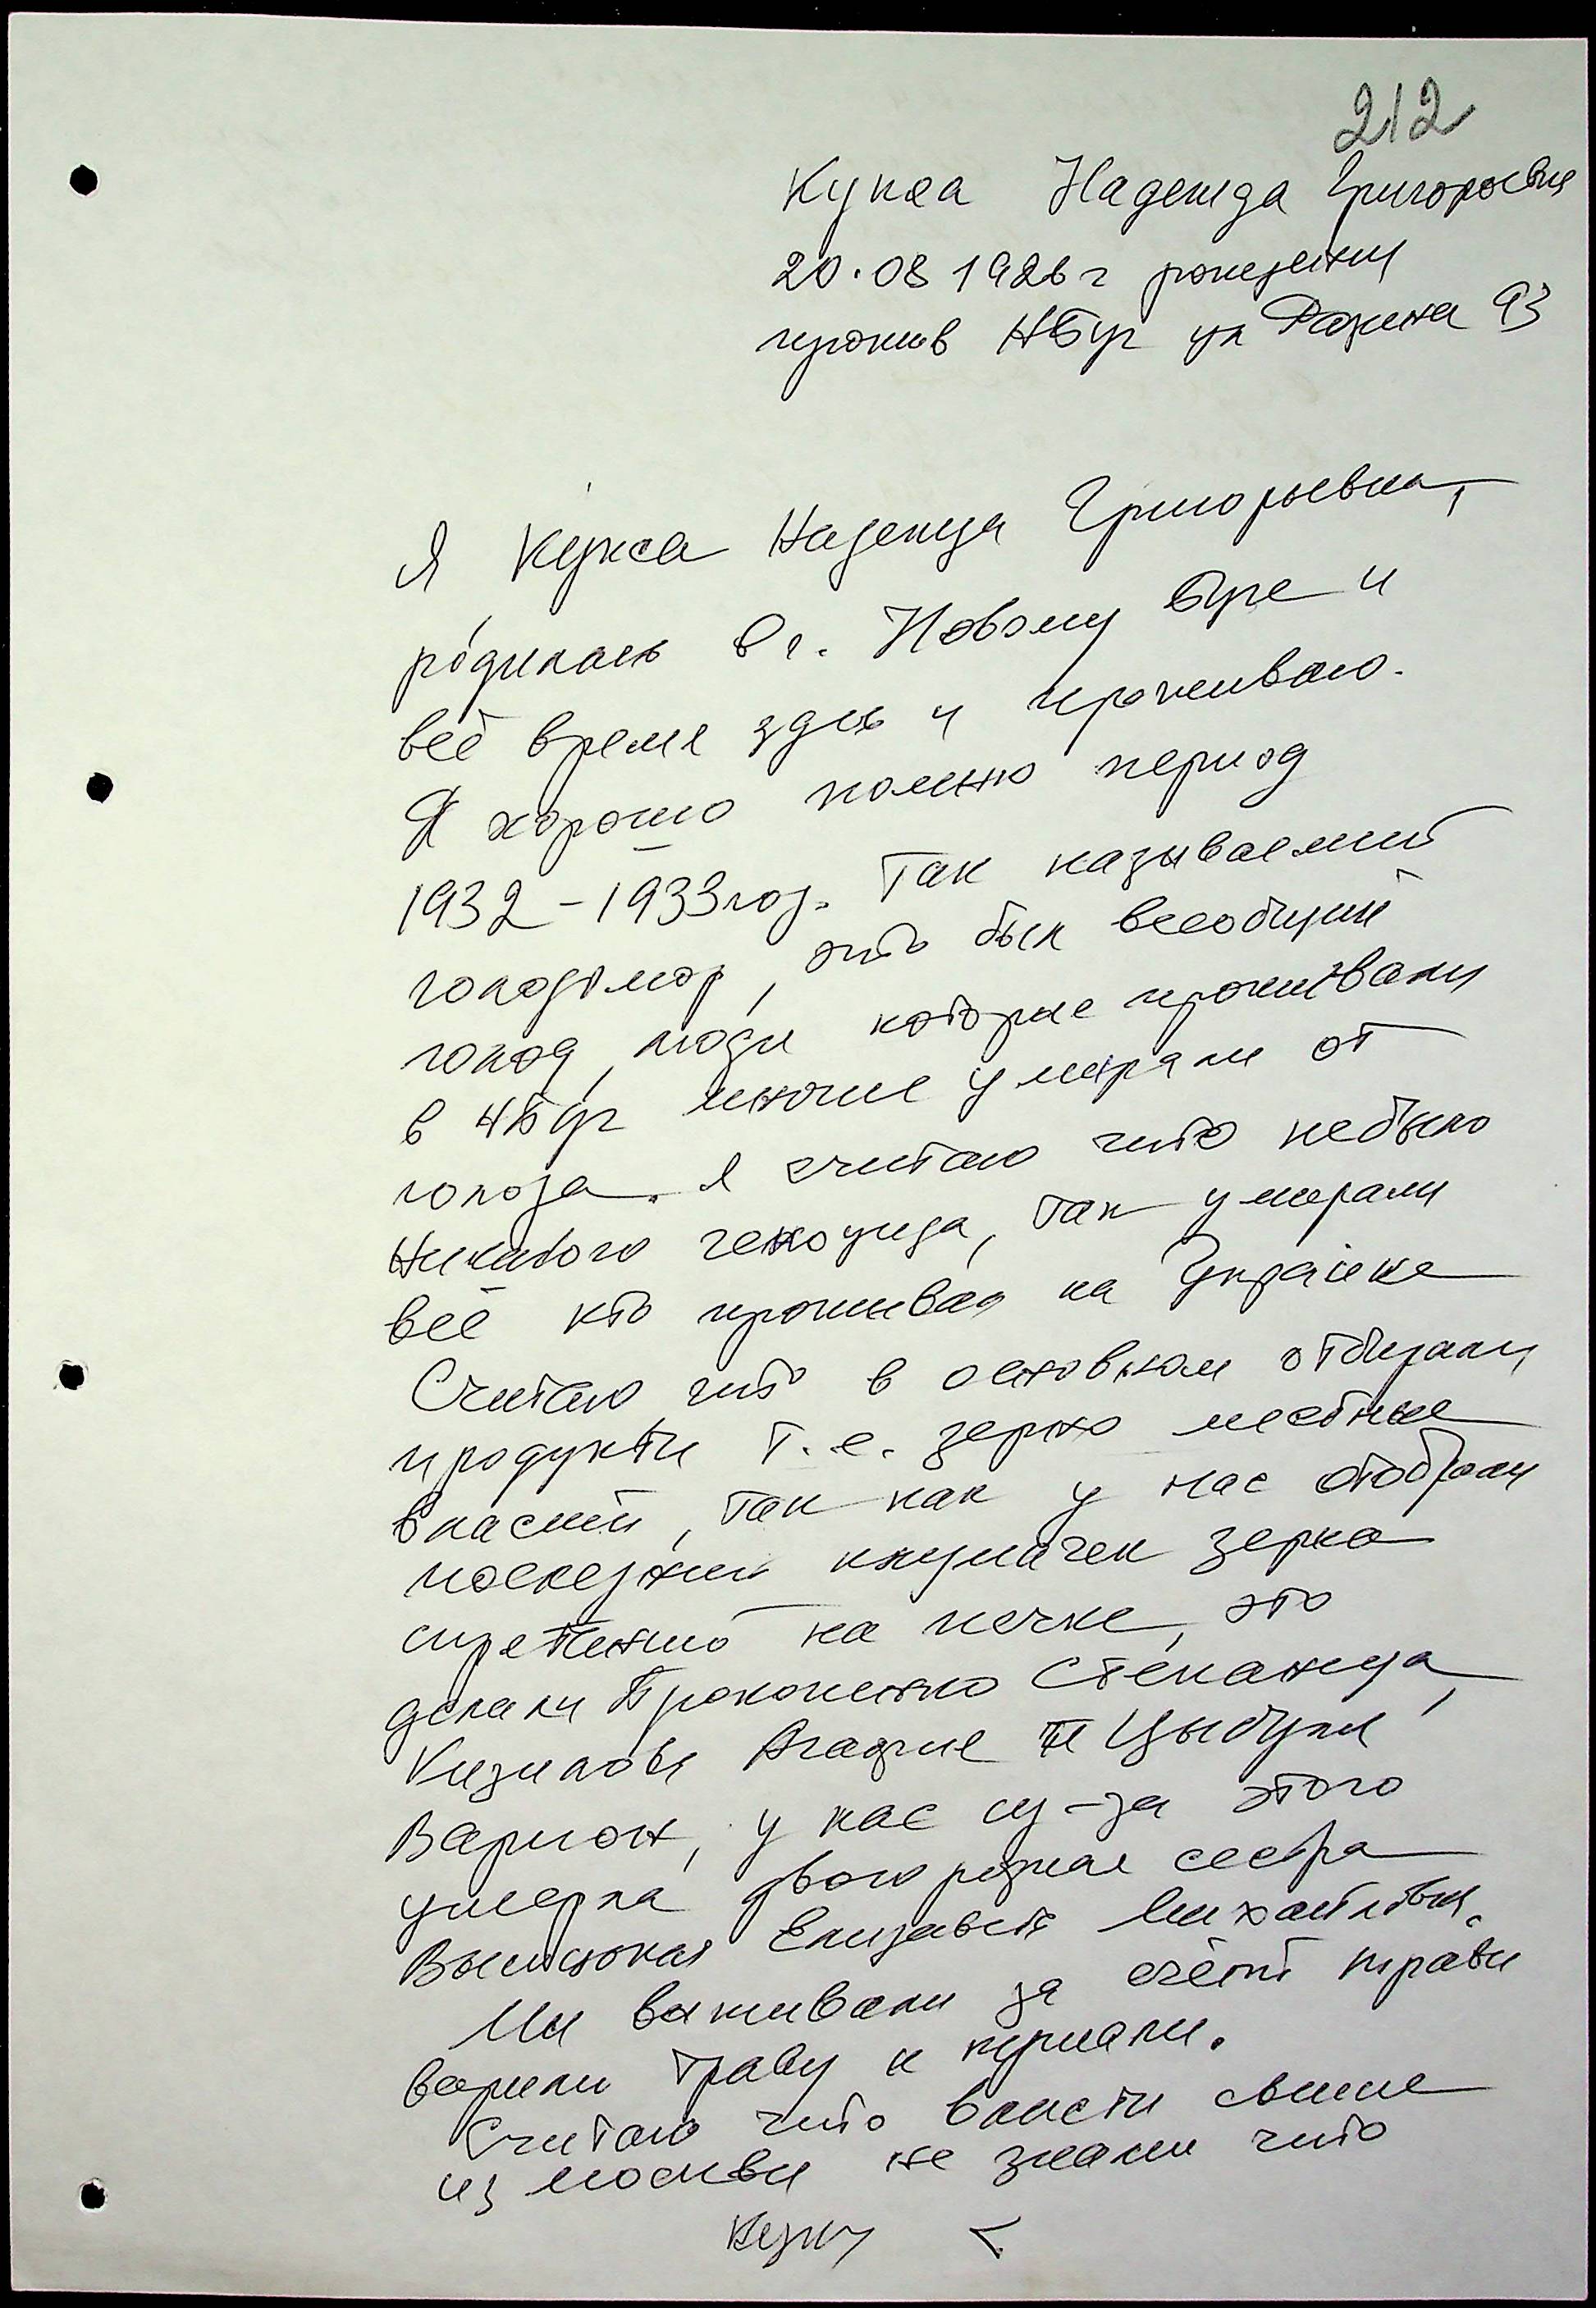 212
Кукса Надежда Григорьевна
20.08 1926 г рождения
прожив НБуг ул Разина 93
Я Кукса Надежда Григорьевна,
родилась в г. Новому Буге и
всё время здесь и проживаю.
Я хорошо помню период
1932-1933 год. Так называемий
голодомор, это был всеобщий
голод, люди которые проживали
в НБуг многие умирали от
голода. Я считаю что небыло
никакого геноцида, так умирали
все кто проживал на Украине
Считаю что в основном отбирали
продукты т.е. зерно местные
власти, так как у нас отобрали
последний клумачек зерна
спретаний на печке, это
делали Прокопенко Степанида,
Кизилова Агафие и Цыбуля
Варион, у нас из-за этого
умерла двоюродная сестра
Елизавета Михайловна.
Ми выживали за счёт травы
варили траву и кушали.
Считаю что власти свыше
из Москвы не знали что